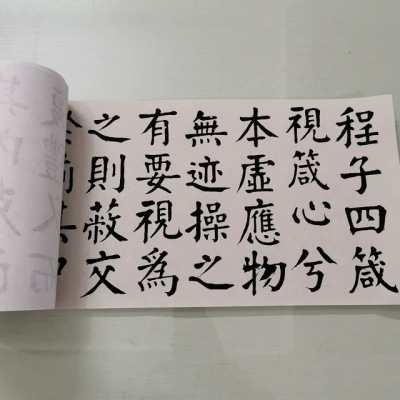 程子四箴
視箴心兮
本虛應物
無迹操之
有要視爲
之則蔽交